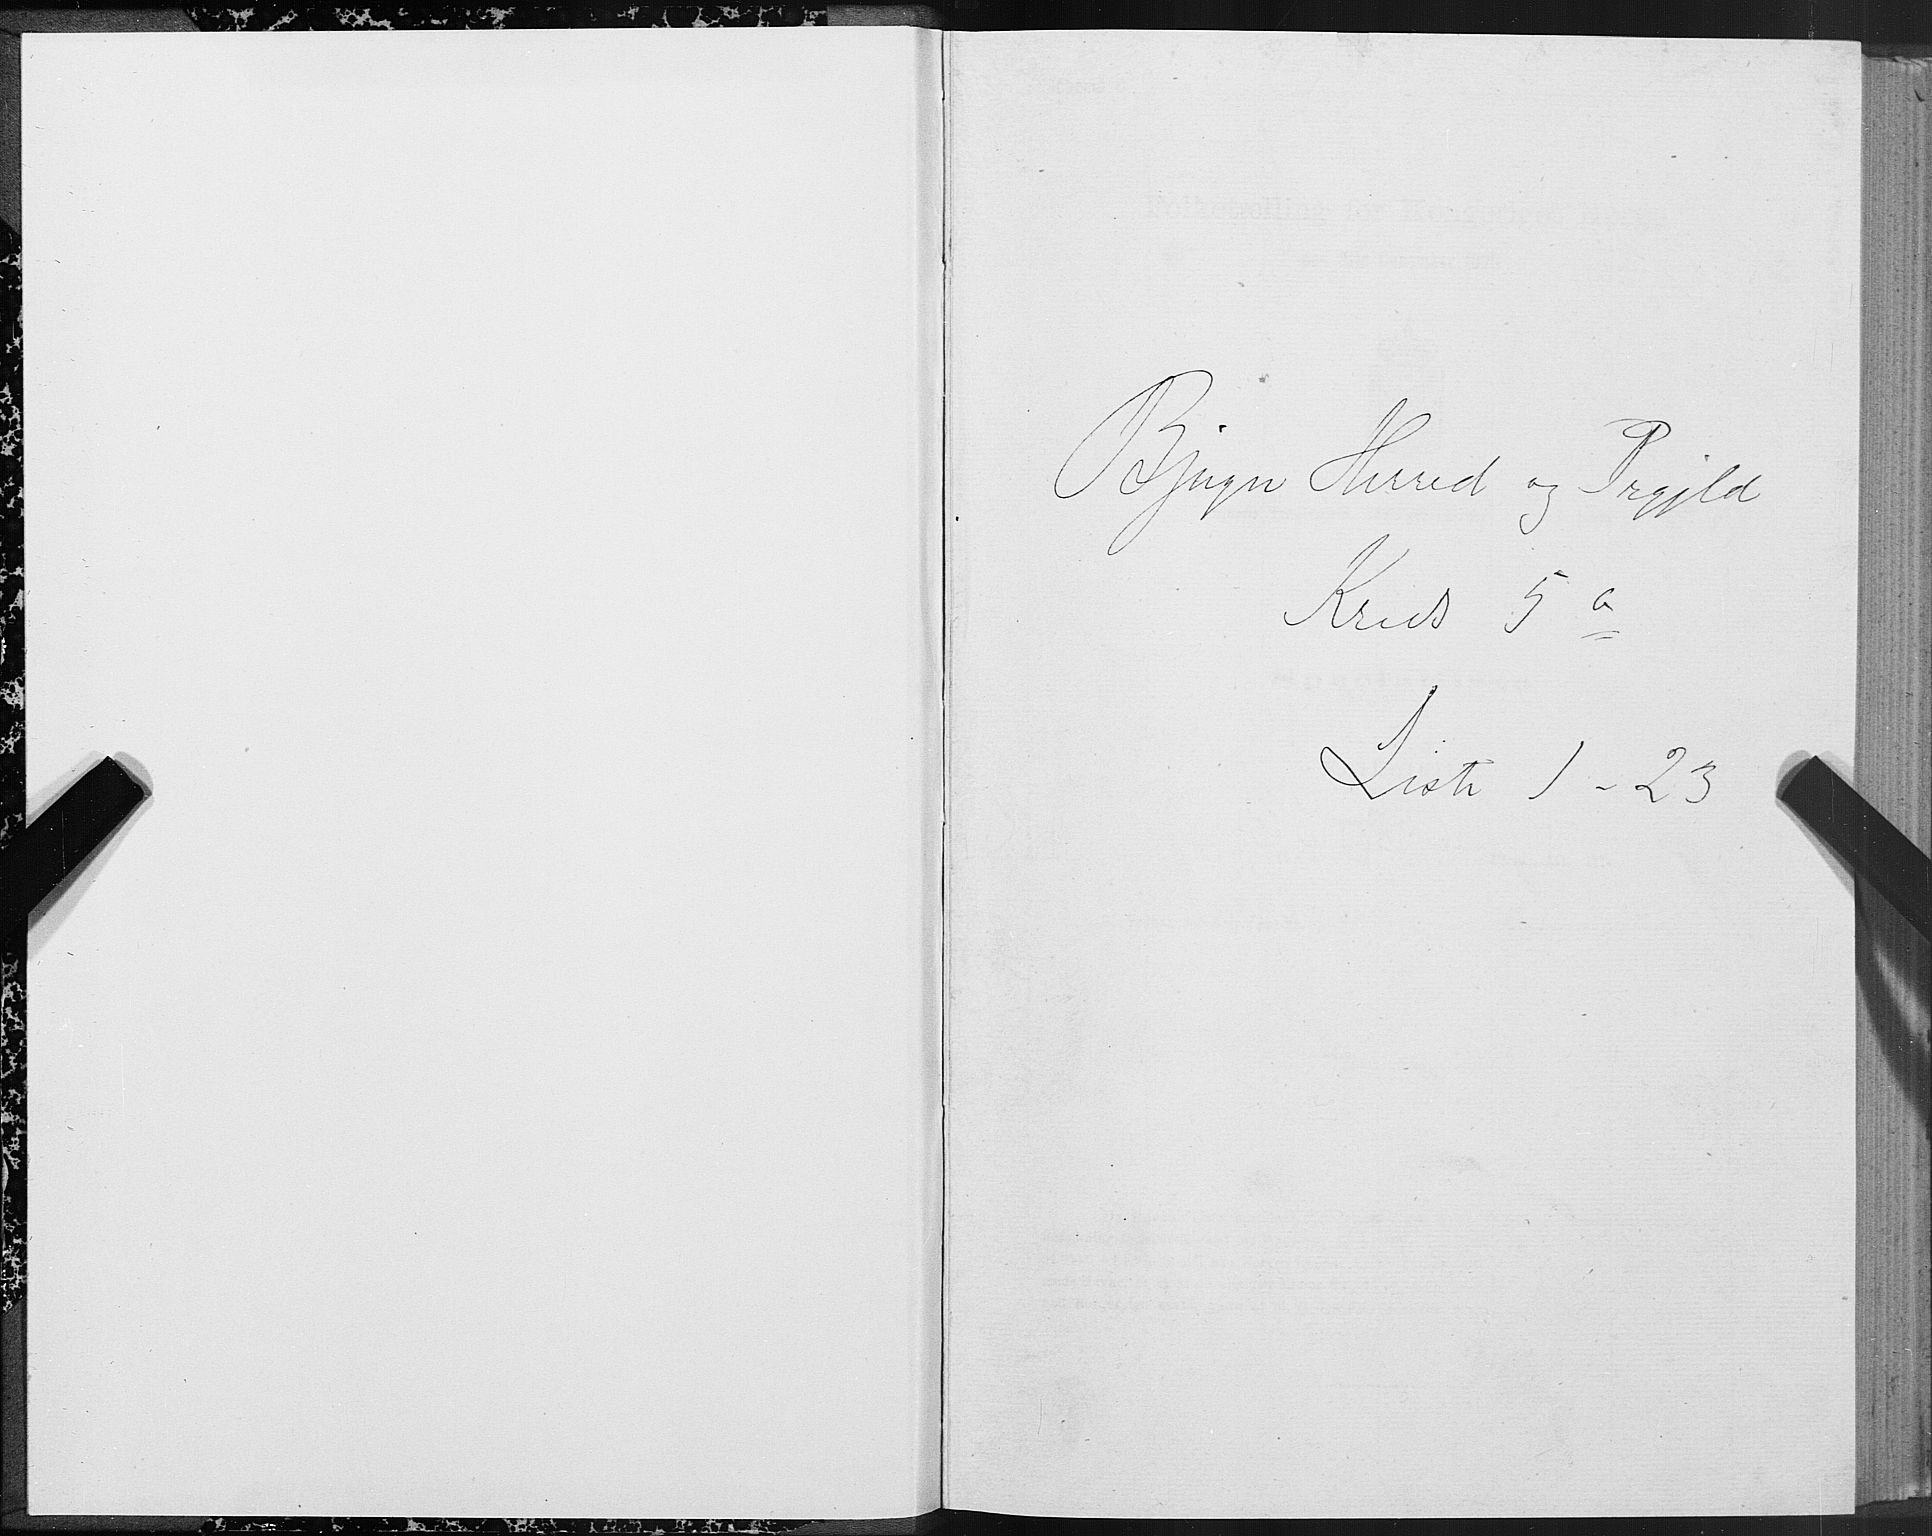 Bjugn Herred og Prgjld
Kreds 5 a
Liste 1 - 23